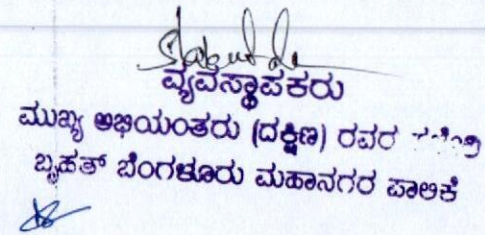 ವ್ಯವಸ್ಥಾಪಕರು
ಮುಖ್ಯ ಅಭಿಯಂತರು (ದಕ್ಷಿಣ) ರವರ
ಬೃಹತ್ ಬೆಂಗಳೂರು ಮಹಾನಗರ ಪಾಲಿಕೆ